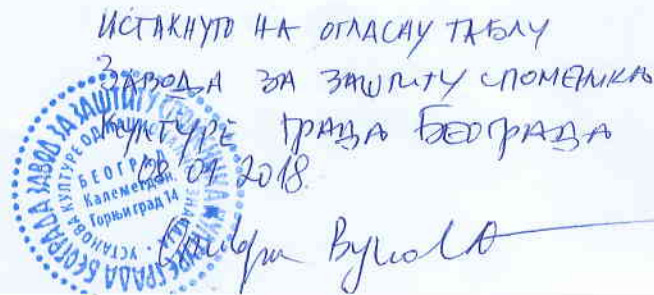 ИСТАКНУТО НА ОГЛАСНУ ТАБЛУ
ЗАВОДА ЗА ЗАШТИТУ СПОМЕНИКА
КУЛТУРЕ ГРАДА БЕОГРАДА
08 01 2018.
ЗАВОД ЗА ЗАШТИТУ СПОМЕНИКА КУЛТУРЕ ГРАДА БЕОГРАДА
УСТАНОВА КУЛТУРЕ ОД
БЕОГРАД
Калемегдан
Горњи град 14